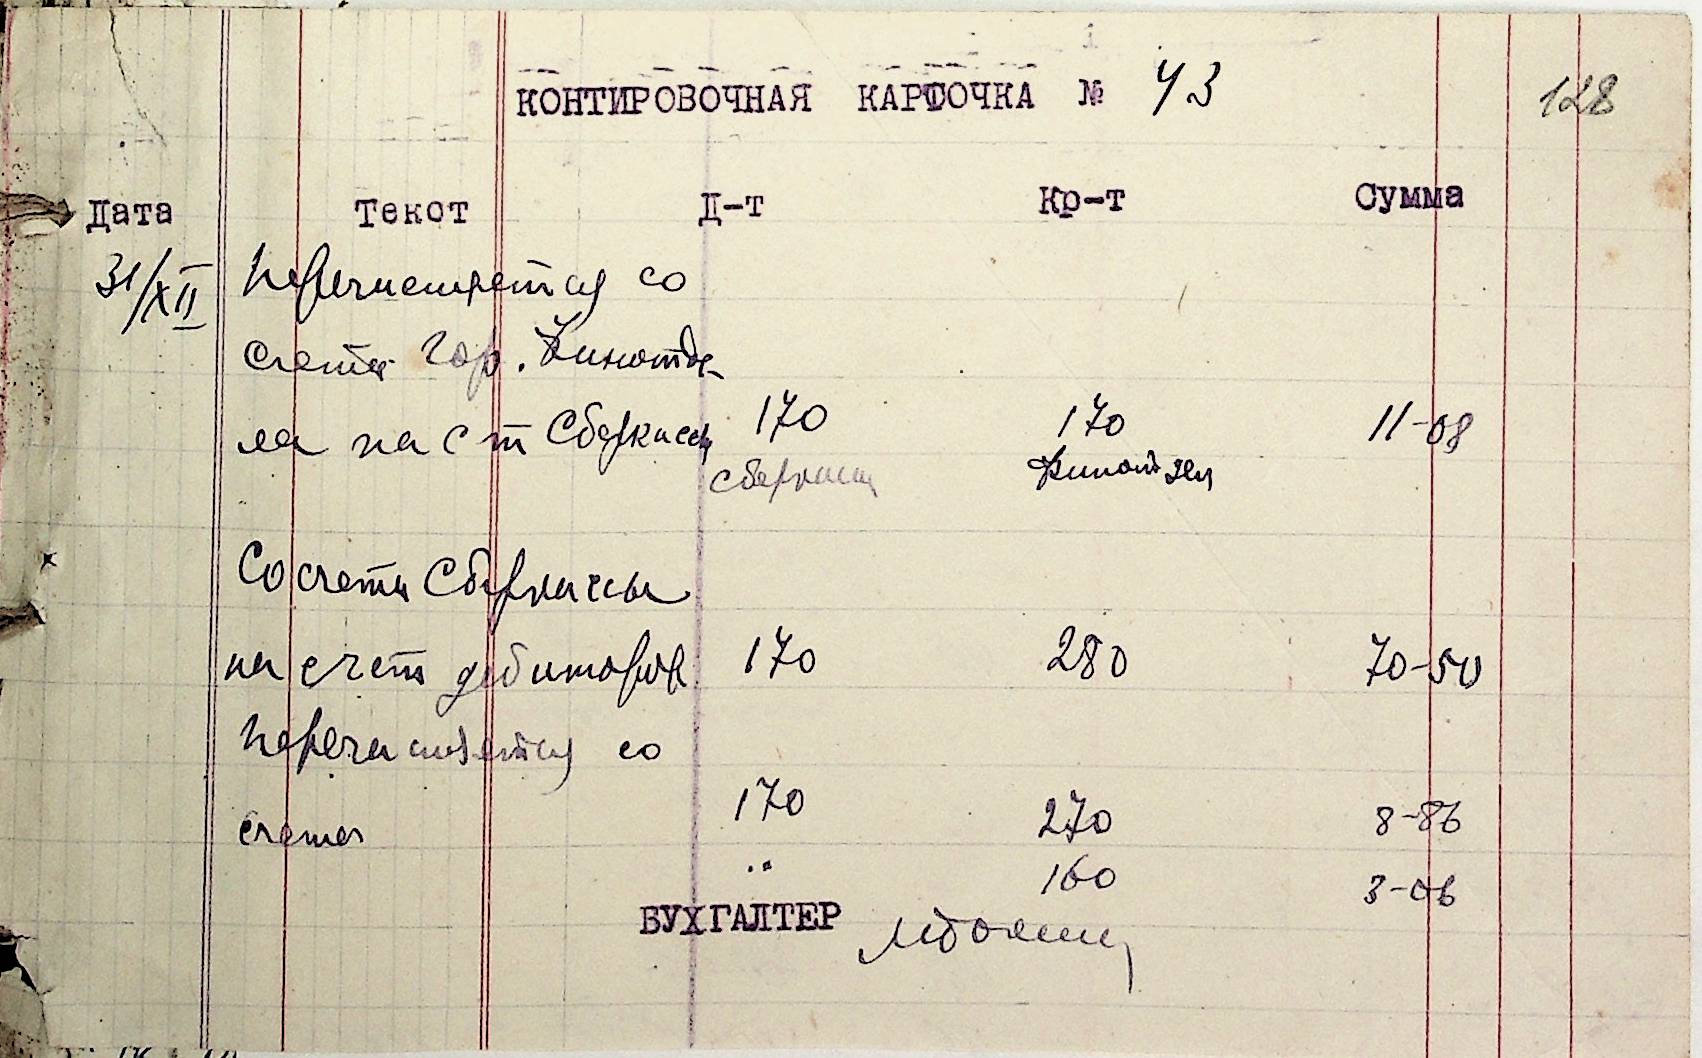 КОНТИРОВОЧНАЯ КАРТОЧКА № 43
128
Дата Текст Д-т Кр-т Сумма
31/XII Перечисляется со
счета Гор. Кинотде-
ла на с т Сберкассы 170 170 11-08
сберкассы Кинотдел
Со счета Сберкассы
на счет дебиторов 170 280 70-50
Перечисляется со
счета 170 270 8-86
" 160 3-06
БУХГАЛТЕР